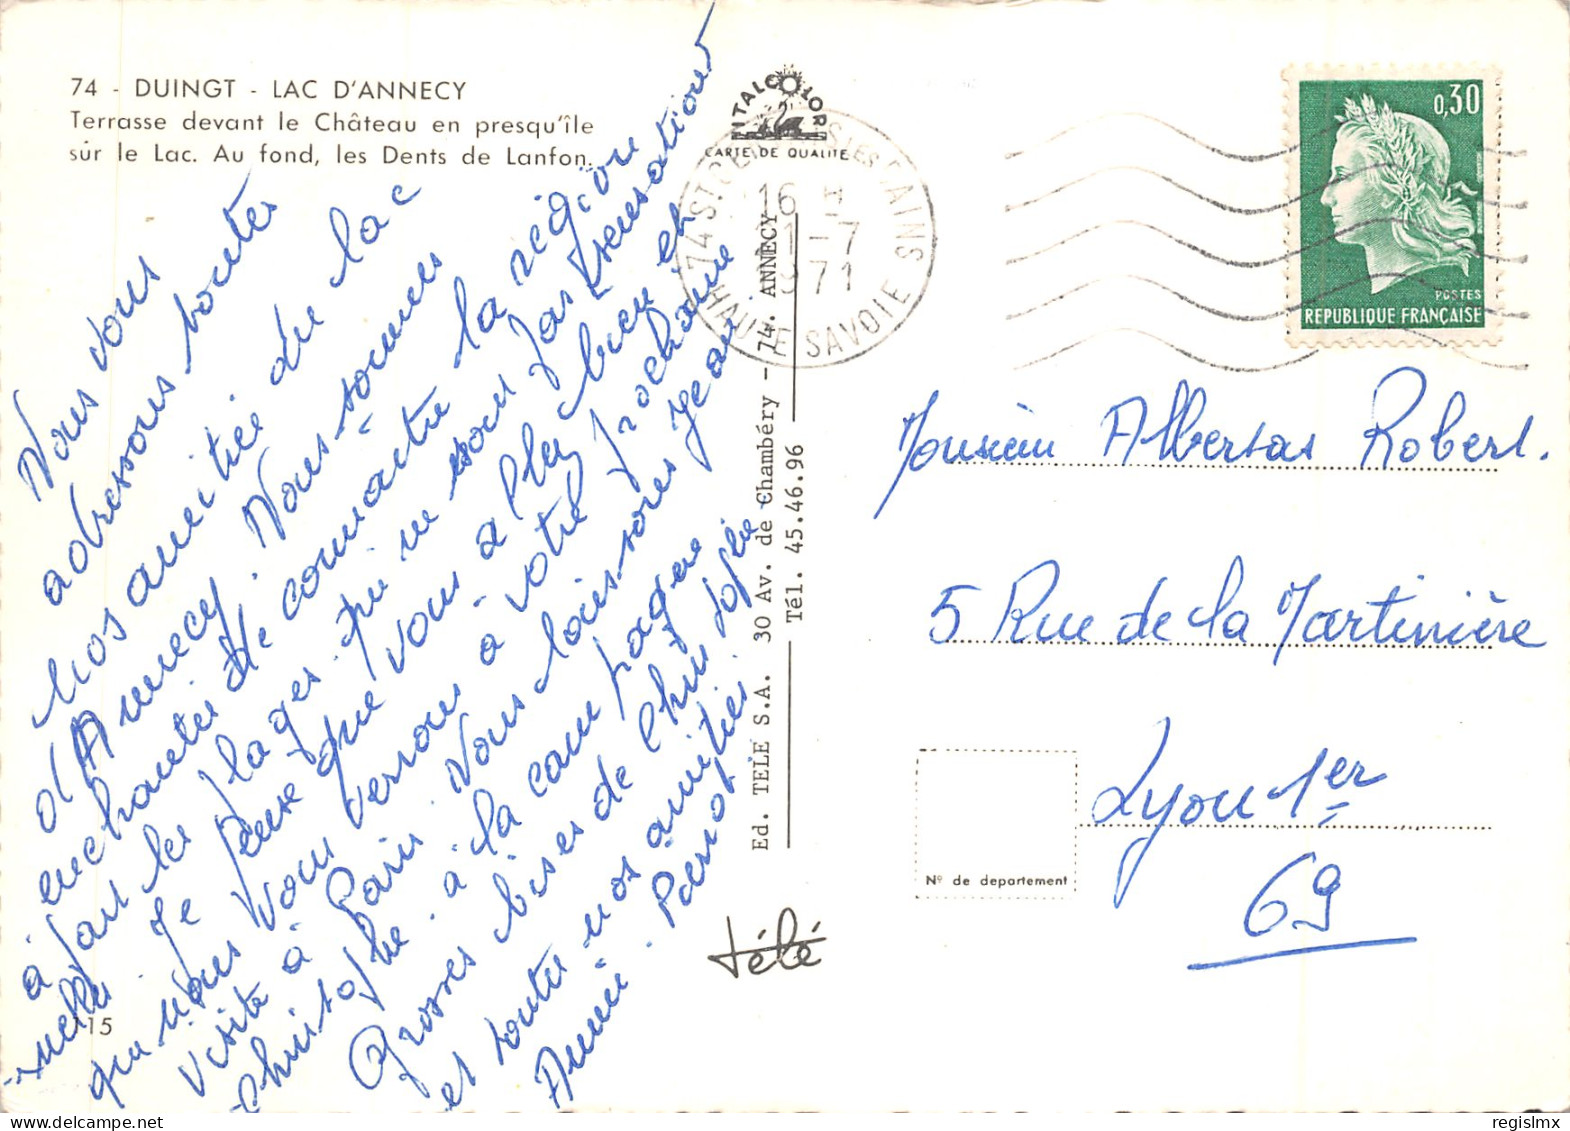 74 - DUINGT - LAC D'ANNECY
Terrasse devant le Château en presqu'île
sur le Lac. Au fond, les Dents de Lanfon.
ITALCOLOR
CARTE DE QUALITÉ
16 H
1-7
1971
HAUTE SAVOIE
0,30
POSTES
REPUBLIQUE FRANÇAISE
Nous vous
adressons toutes
nos amitiés du lac
d'Annecy. Nous sommes
enchantés de connaître la région
à part les plages qui ne sont pas sensationnelles
Je pense que vous allez bien et
que nous vous verrons à votre prochaine
visite à Paris. Nous laissons Jean
Christophe à la campagne
Grosses bises de Christophe
et toutes nos amitiés.
Annie Perrot
Ed. TELE S.A. 30 Av. de Chambéry - 74. ANNECY
Tél. 45.46.96
Monsieur Albersas Robert.
5 Rue de la Martinière
Lyon 1er
69
Nº de departement
télé
115
regislmx